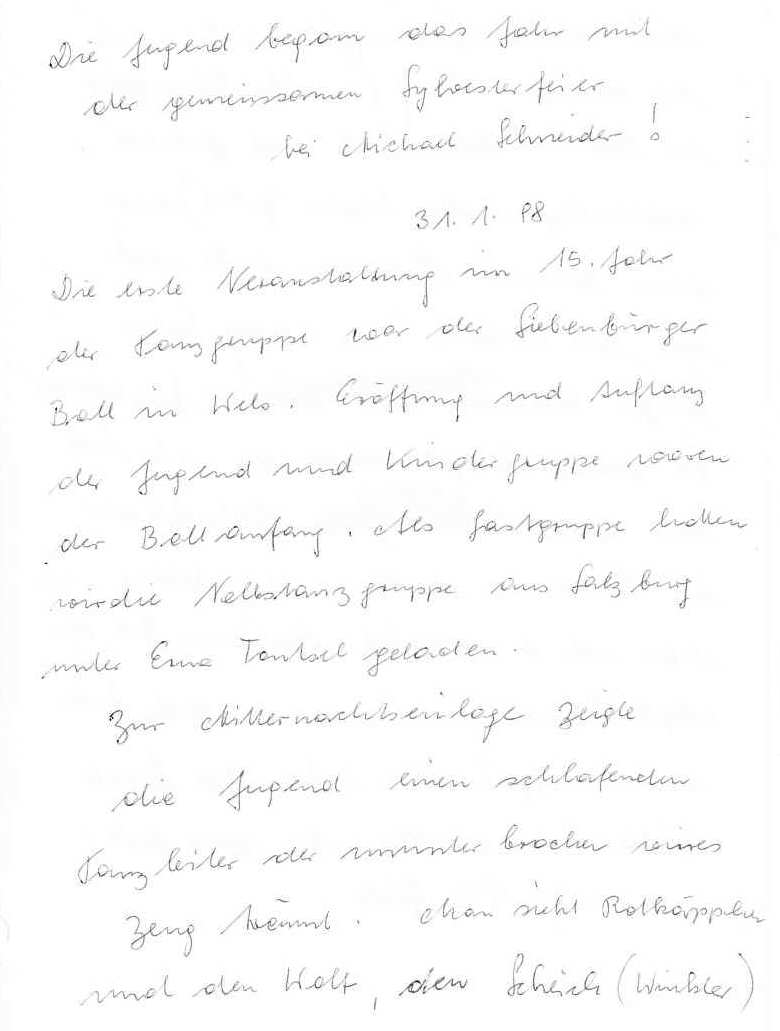 Die Jugend begann das Jahr mit
der gemeinsamen Sylvesterfeier
bei Michael Schneider!
31.1.98
Die erste Veranstaltung im 15. Jahr
der Tanzgruppe war der Siebenbürger
Ball in Wels. Eröffnung und Auftanz
der Jugend und Kindergruppe waren
der Ballanfang. Als Gastgruppe hatten
wir die Volkstanzgruppe aus Salzburg
unter Erna geladen.
Zur Mitternachtseinlage zeigte
die Jugend einen schlafenden
Tanzleiter der wirres
Zeug träumt. Man sieht Rotkäppchen
und den Wolf, den Scheich (Winkler)